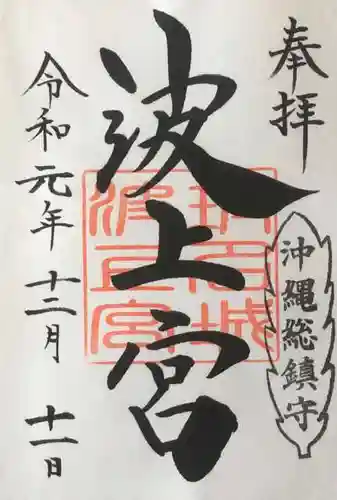 奉拝
沖縄総鎮守
波上宮
令和元年十二月十一日